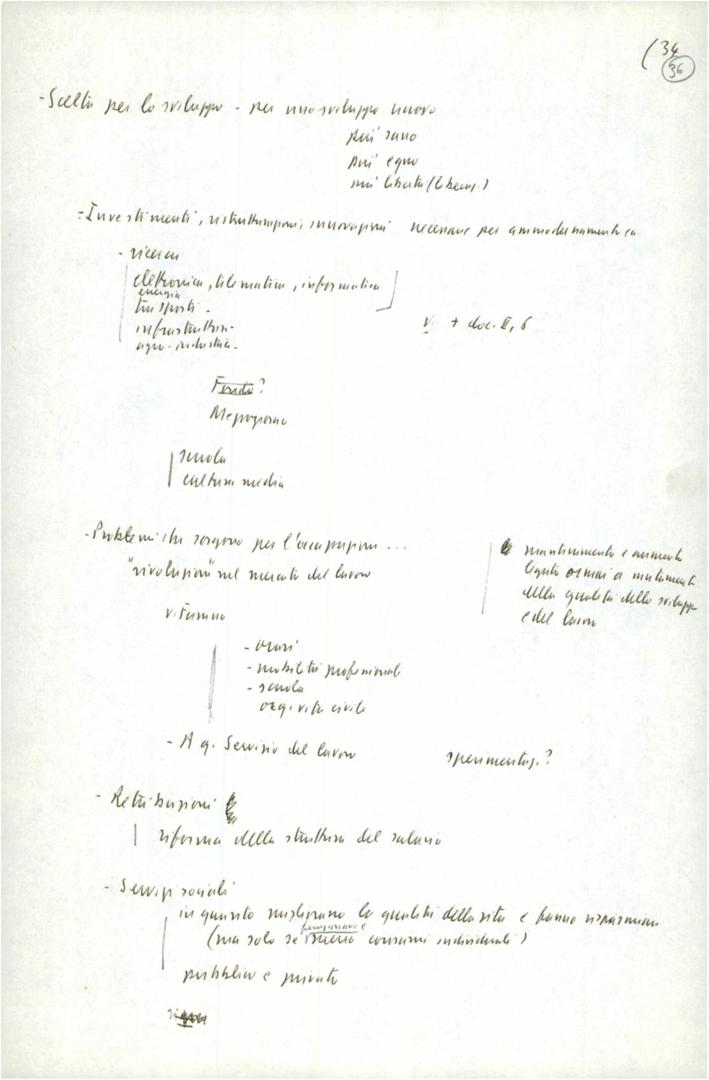 (34
36
- Scelta per lo sviluppo - per uno sviluppo nuovo
più sano
più equo
più libertà (liberaz.)
- Investimenti, ristrutturazioni, innovazioni necessarie per ammodernamento ec.
- ricerca
elettronica, telematica, informatica
energia
trasporti -
infrastruttur-
agro-industria -
v. + doc. II, 6
Fondo?
Mezzogiorno
scuola
cultura media
- Problemi che sorgono per l'occupazione ...
"rivoluzioni" nel mercato del lavoro
mantenimento e aumento
legato ormai a mutamento
della qualità dello sviluppo
e del lavoro
v.
- orari
- mobilità professionale
- scuola
org. vita civile
- Ag. Servizio del lavoro sperimentaz.?
- Retribuzioni
riforma della struttura del salario
- Servizi sociali
in quanto migliorano la qualità della vita e fanno risparmiare
(ma solo se consumi individuali)
pubblico e privato